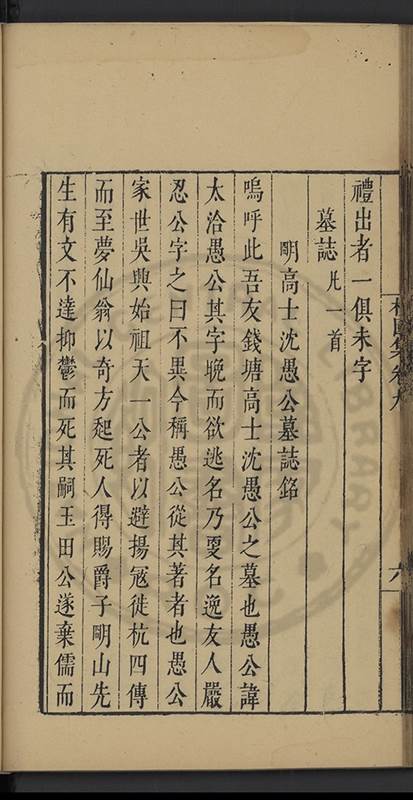 禮出者一俱未字
墓誌凡一首
明高士沈愚公墓誌銘
嗚呼此吾友錢塘高士沈愚公之墓也愚公諱
太洽愚公其字晚而欲逃名乃更名逸友人嚴
忍公字之曰不異今稱愚公從其著者也愚公
家世吳興始祖天一公者以避揚冦徙杭四傳
而至夢仙翁以奇方起死人得賜爵子明山先
生有文不達抑鬱而死其嗣玉田公遂棄儒而